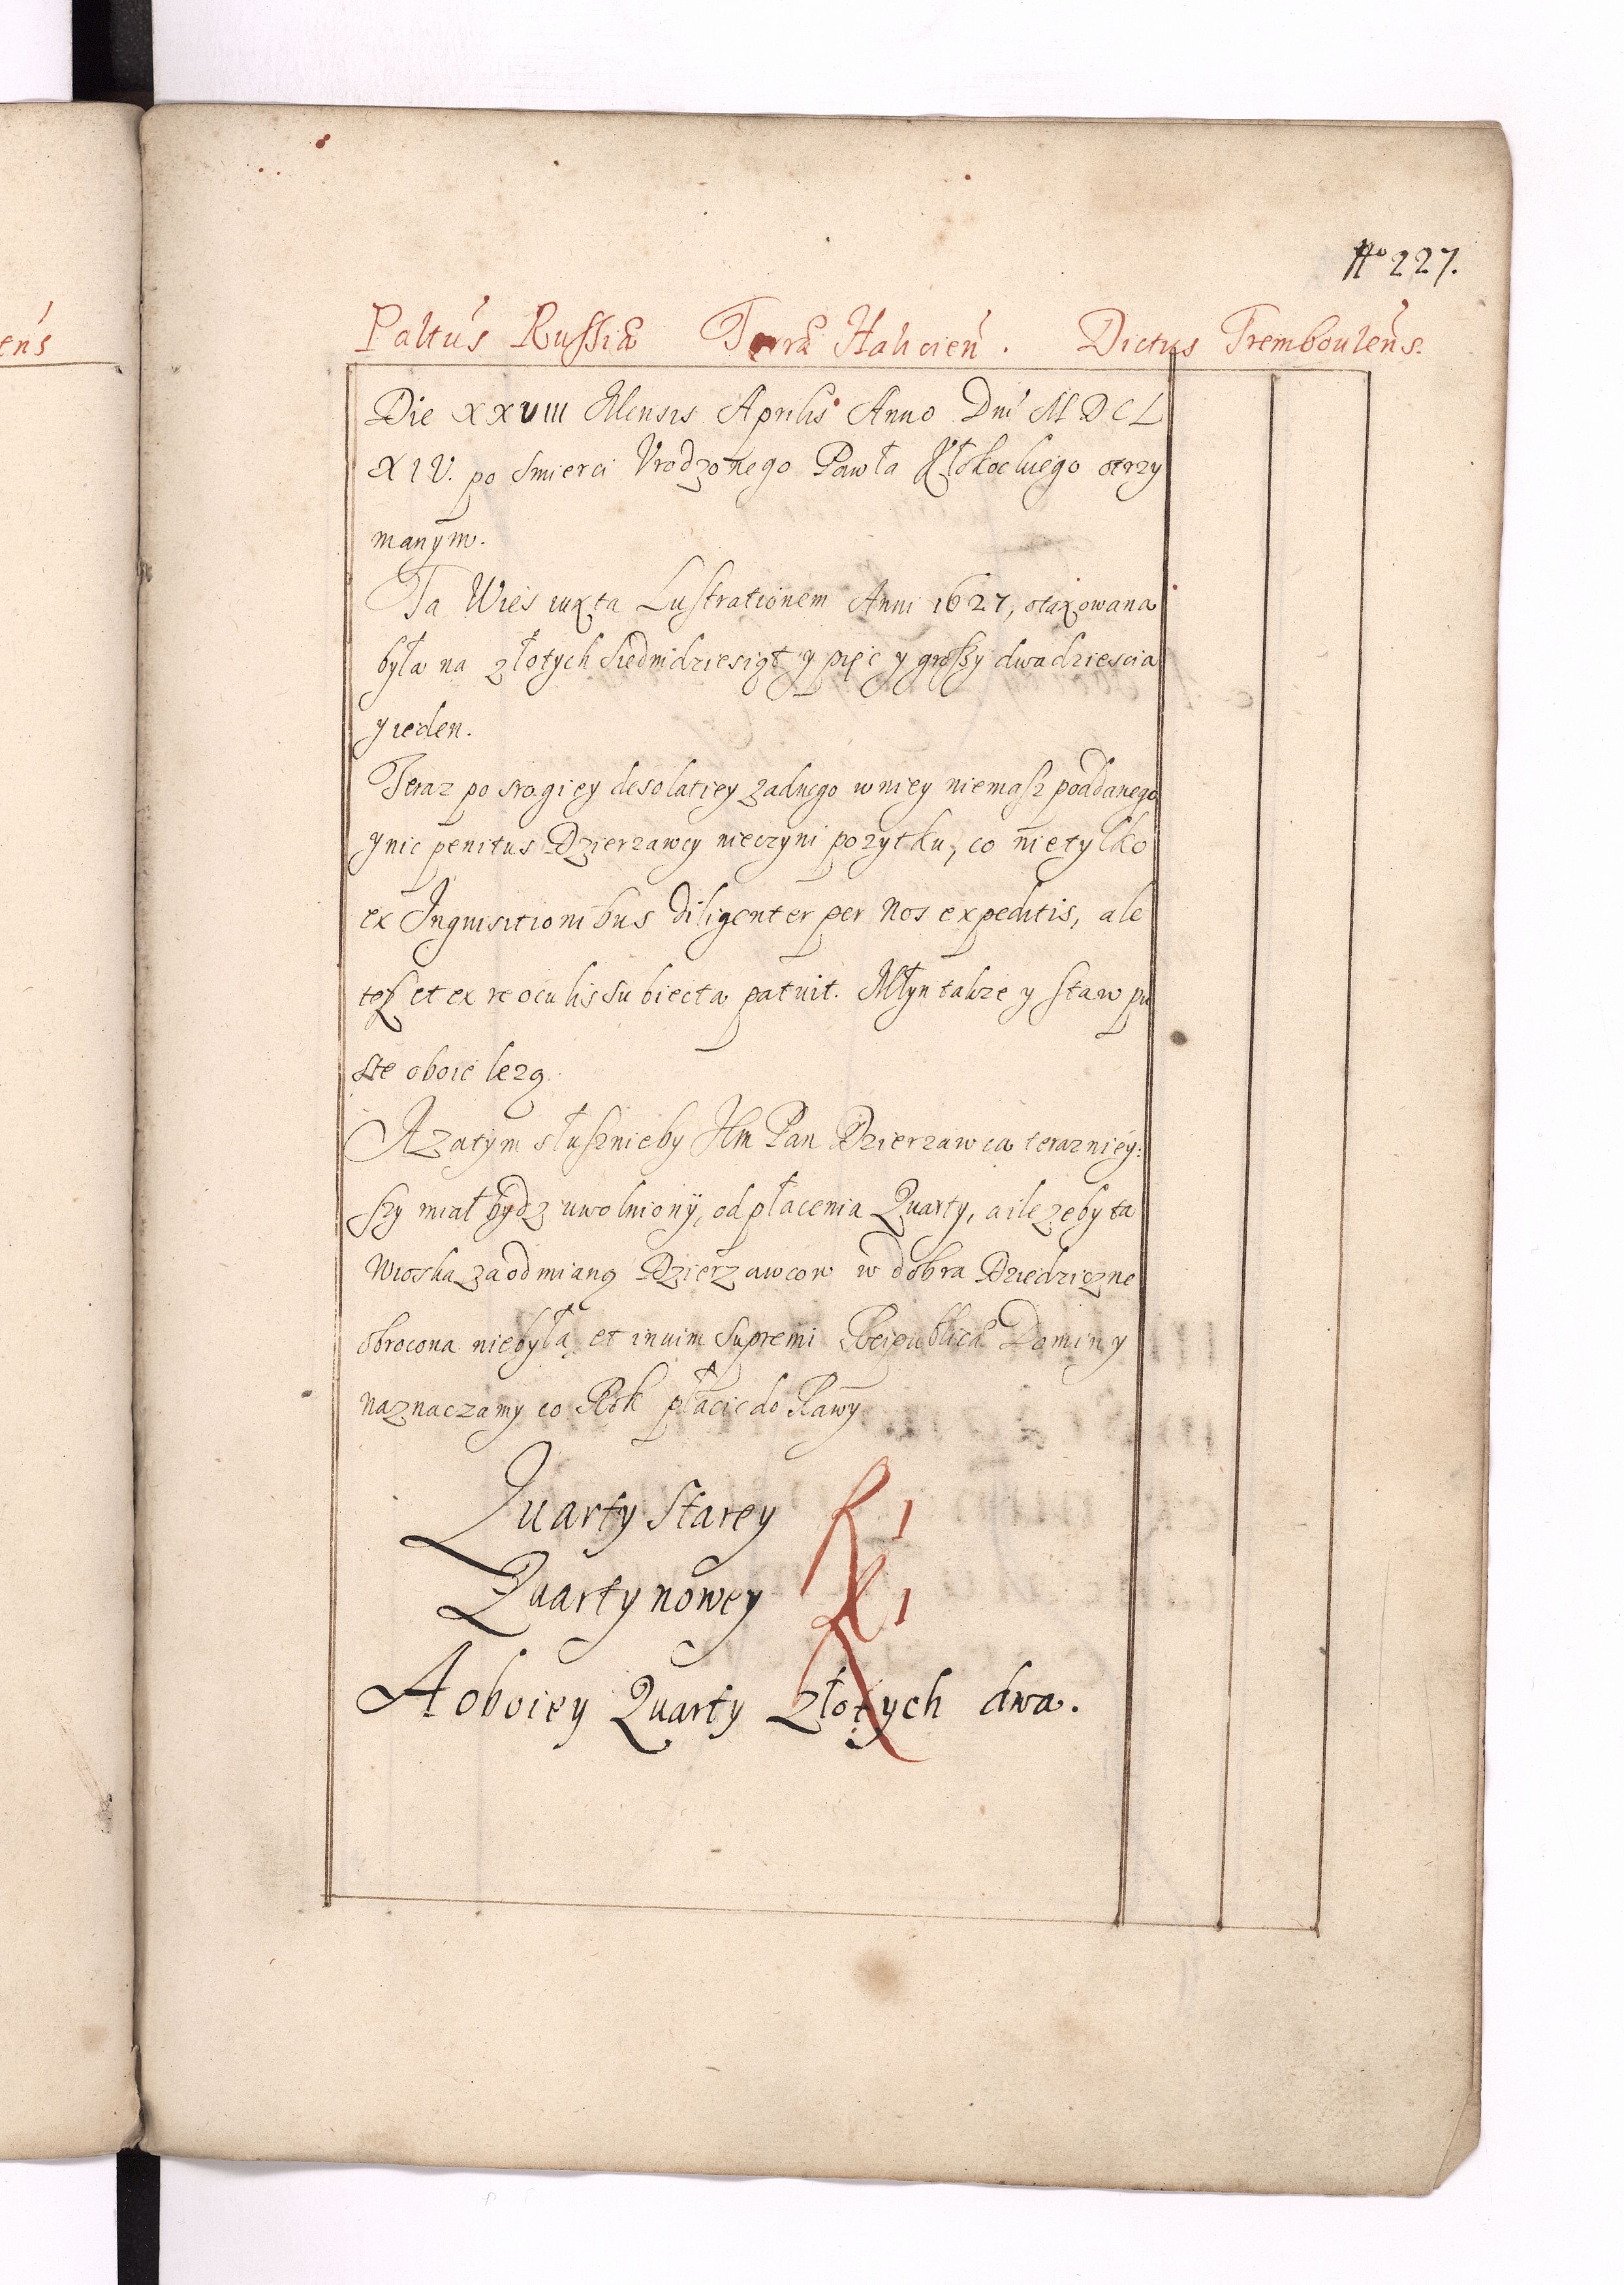 No 227.
ens
Paltus Russiæ Terræ Halicien. Dictus Tremboulens.
Die XXVIII Mensis Aprilis Anno Dni MDCL
XIV. po Smierci Urodzonego Pawła otrzy
manym.
Ta Wies iuxta Lustrationem Anni 1627, otaxowana
była na złotych Siedmdziesiąt y pięc y groszy dwadziescia
y ieden.
Teraz po srogiey desolatiey zadnego w niey niemasz poddanego
y nic penitus Dzierzawcy nieczyni pozytku, co nietylko
ex Inquisitionibus diligenter per Nos expeditis, ale
tesz et ex re oculis subiecta patuit. Młyn takze y staw pu
ste oboie lezą.
A zatym słusznieby Jm Pan Dzierzawca terazniey:
szy miał bydz uwolniony, od płacenia Quarty, a ile zeby ta
Wioska za odmianą Dzierzawcow w dobra Dziedziczne
obrocona niebyła, et in vim Supremi Reipublicæ Dominy
naznaczamy co Rok płacic do Rawy
Quarty starey f 1
Quarty nowey f 1
A oboiey Quarty złotych dwa.